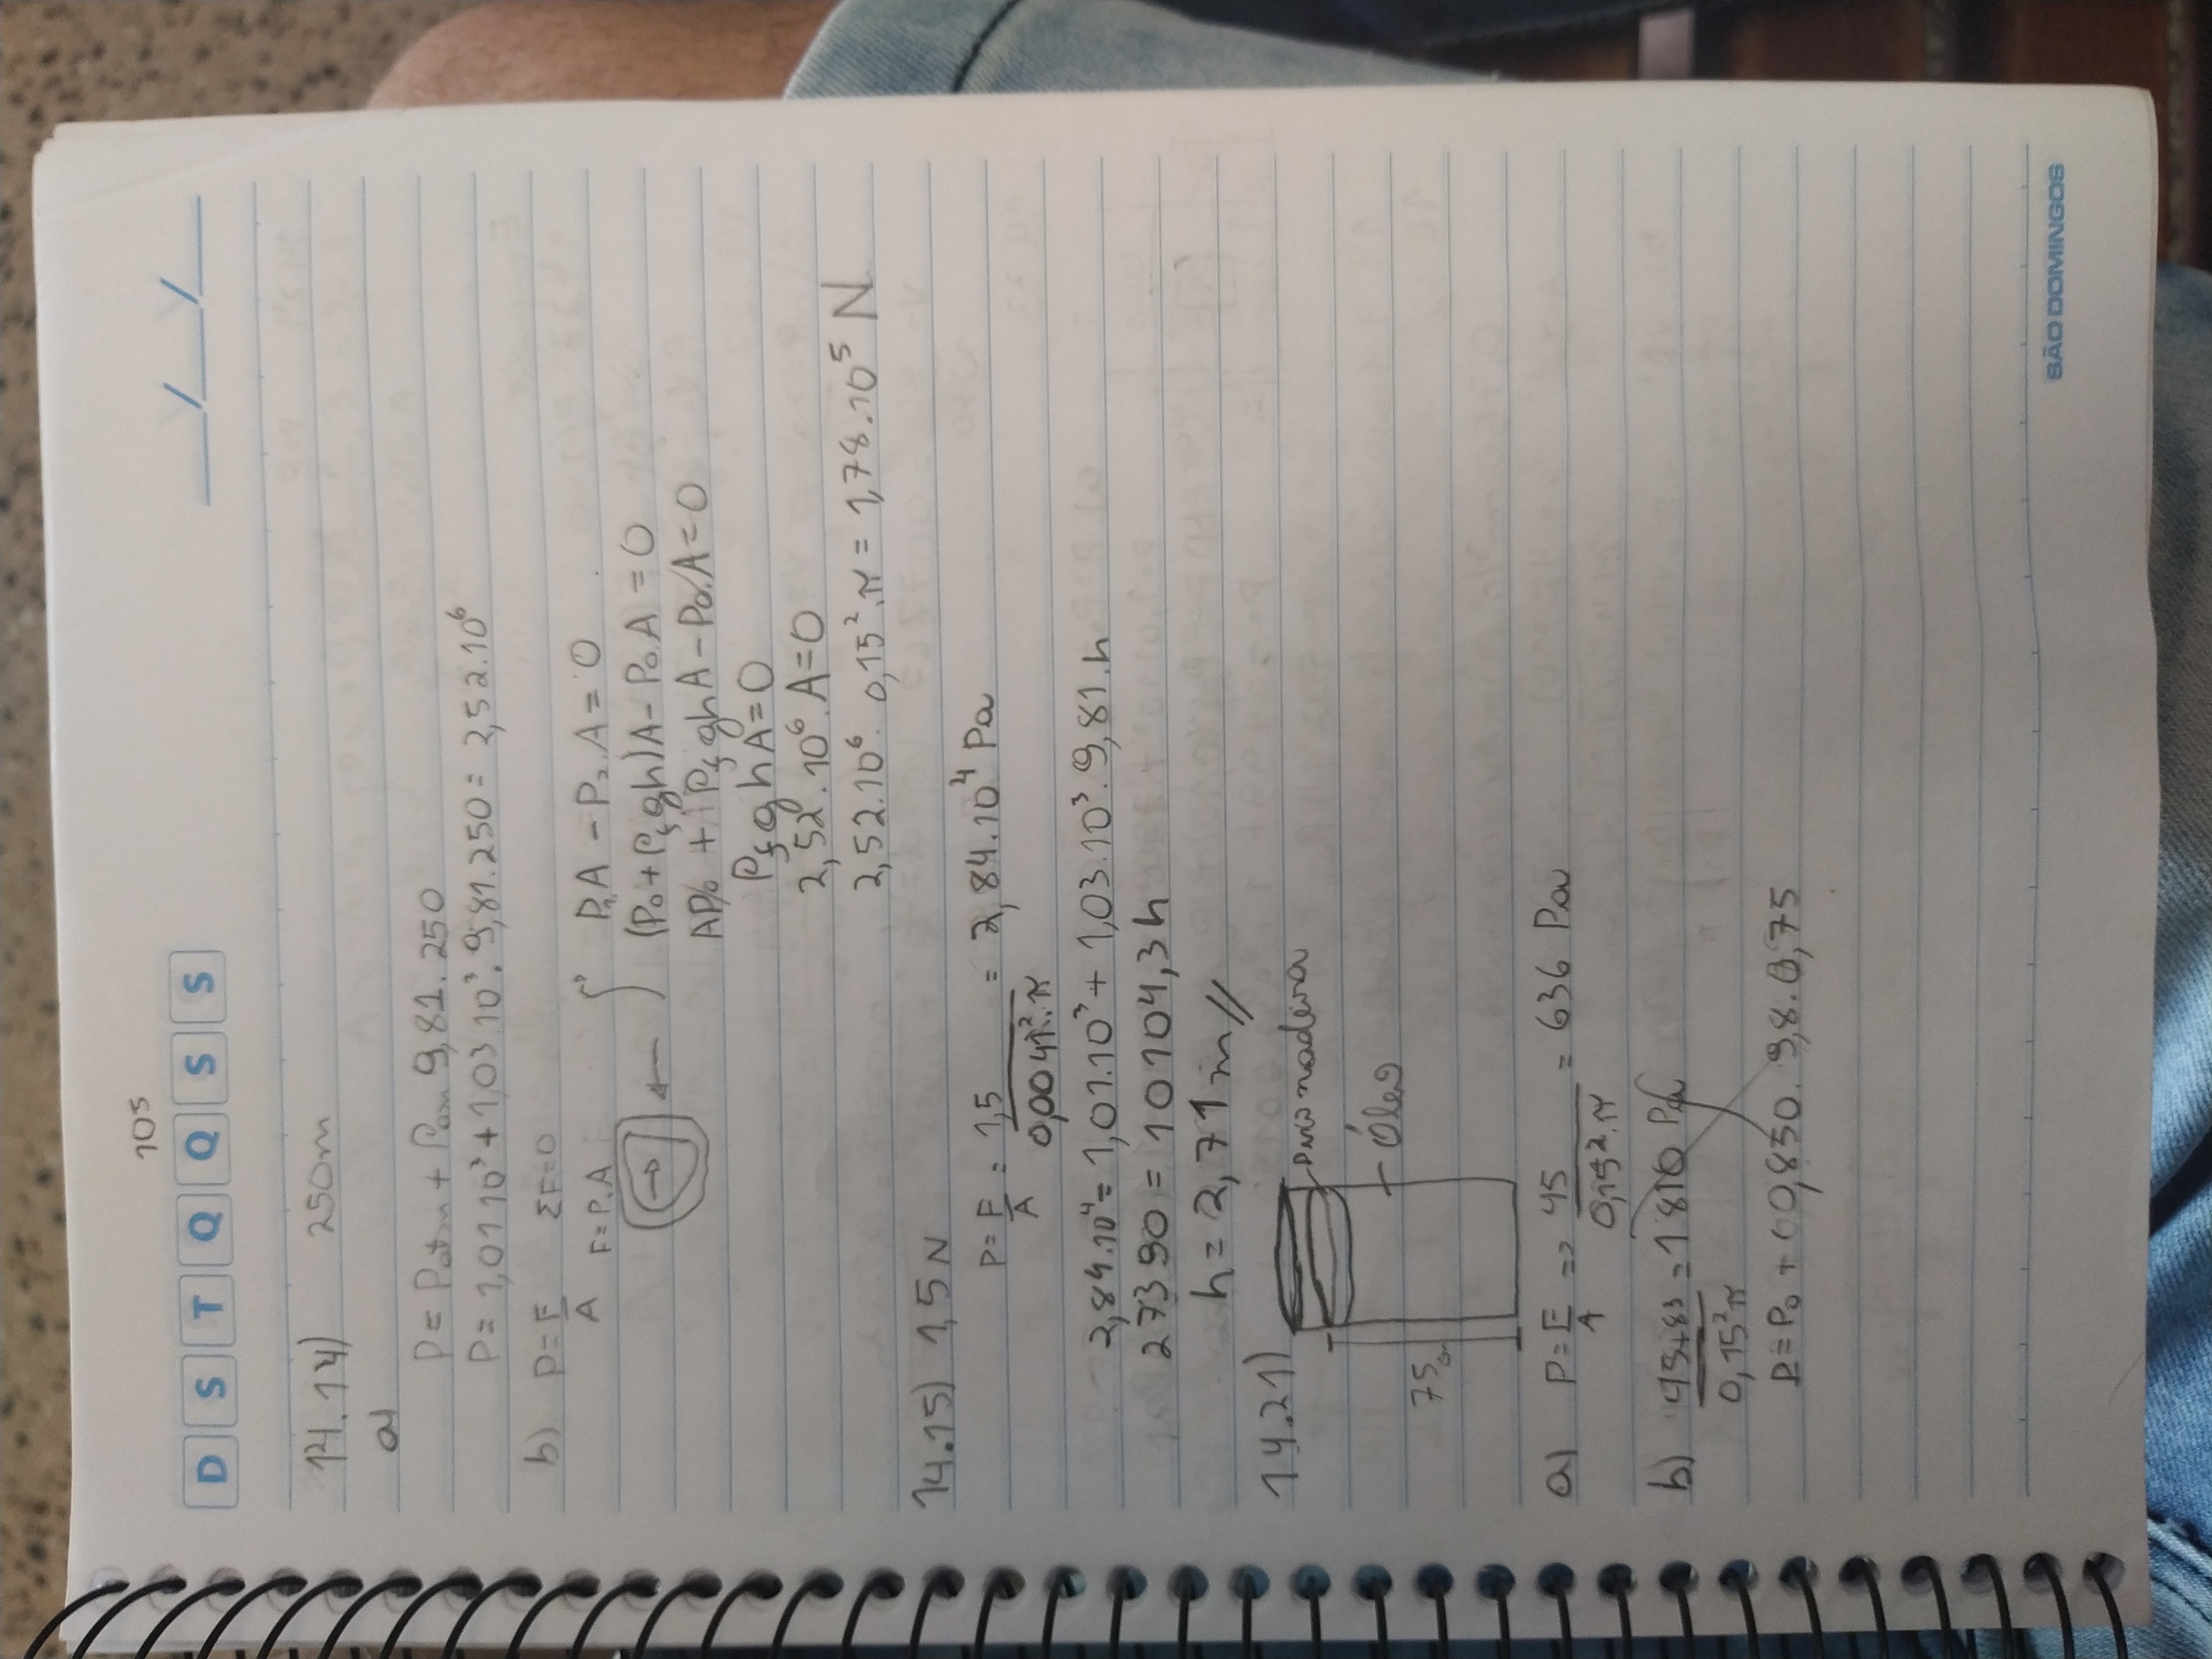 10⁵
D S T Q Q S S __/__/__
14.14) 250m
a)
P = Patm + Pam 9,81.250
P = 1,01.10³ + 1,03.10³.9,81.250 = 2,52.10⁶
b) P = F/A ΣF=0
F = P.A
P₁A - P₂.A = 0
(P₀ + Pₛgh)A - P₀.A = 0
AP₀ + Pₛ ghA - P₀.A = 0
Pₛ g h A = 0
2,52.10⁶.A = 0
2,52.10⁶. 0,15².π = 1,78.10⁵ N
14.15) 1,5 N
P = F/A = 1,5/0,0041².π = 2,84.10⁴ Pa
2,84.10⁴ = 1,01.10³ + 1,03.10³.9,81.h
27390 = 10104,3h
h = 2,71m//
14.21)
madeira
75cm
Óleo
a) P = F/A => 45/0,15².π = 636 Pa
b) 45+83/0,15²π = 1810 Pa
P = P₀ + 0,850.9,8.0,75
SÃO DOMINGOS